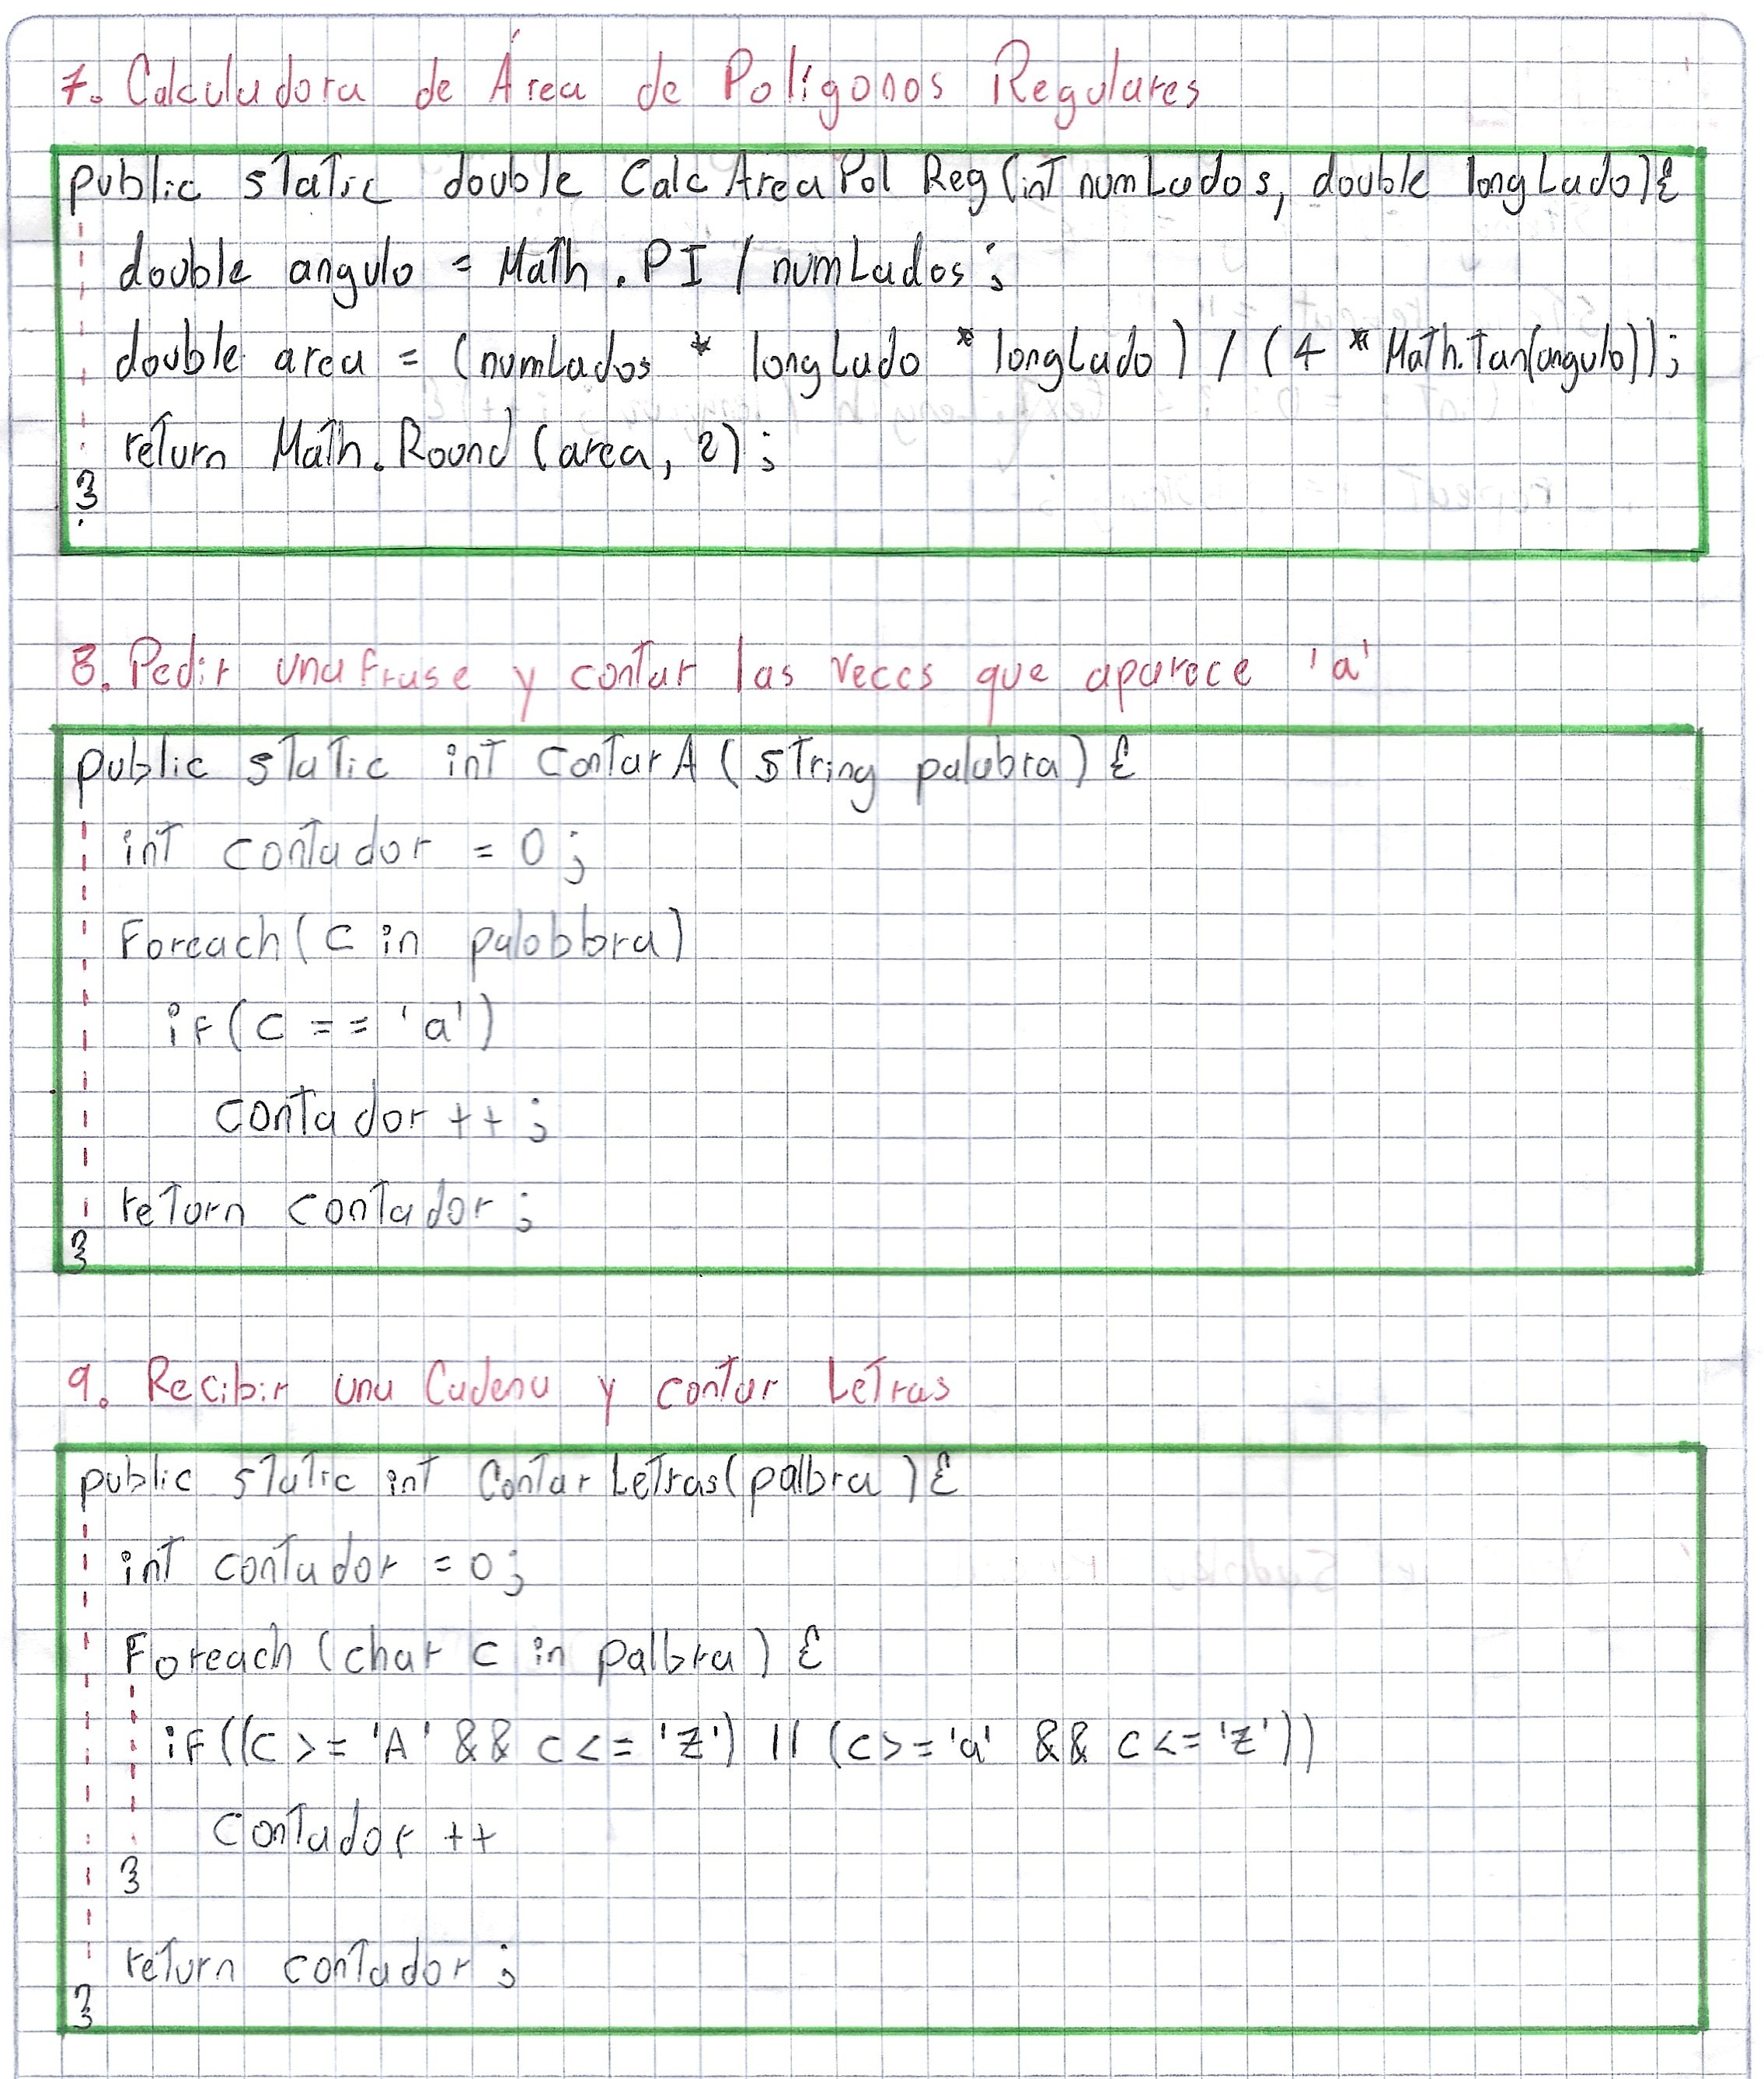 7. Calculadora de Área de Polígonos Regulares
public static double CalcAreaPolReg(int numLados, double longLado){
double angulo = Math.PI / numLados;
double area = (numLados * longLado * longLado) / (4 * Math.Tan(angulo));
return Math.Round(area, 2);
}
8. Pedir una frase y contar las veces que aparece 'a'
public static int ContarA (string palabra) {
int contador = 0;
Foreach(c in palobbra)
if(c == 'a')
contador ++;
return contador;
}
9. Recibir una Cadena y contar Letras
public static int ContarLetras(palbra) {
int contador = 0;
Foreach (char c in palbra) {
if((c >= 'A' && c <= 'Z') || (c >= 'a' && c <= 'z'))
Contador ++
}
return contador;
}